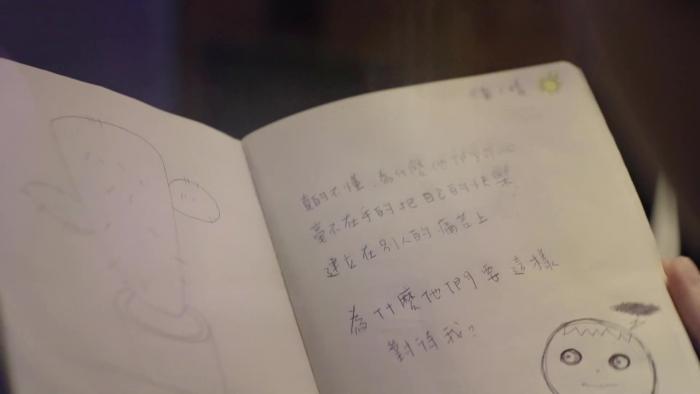 真的不懂，為什麼他們可以
毫不在乎的把自己的快樂
建立在別人的痛苦上
為什麼他們要這樣
對待我？